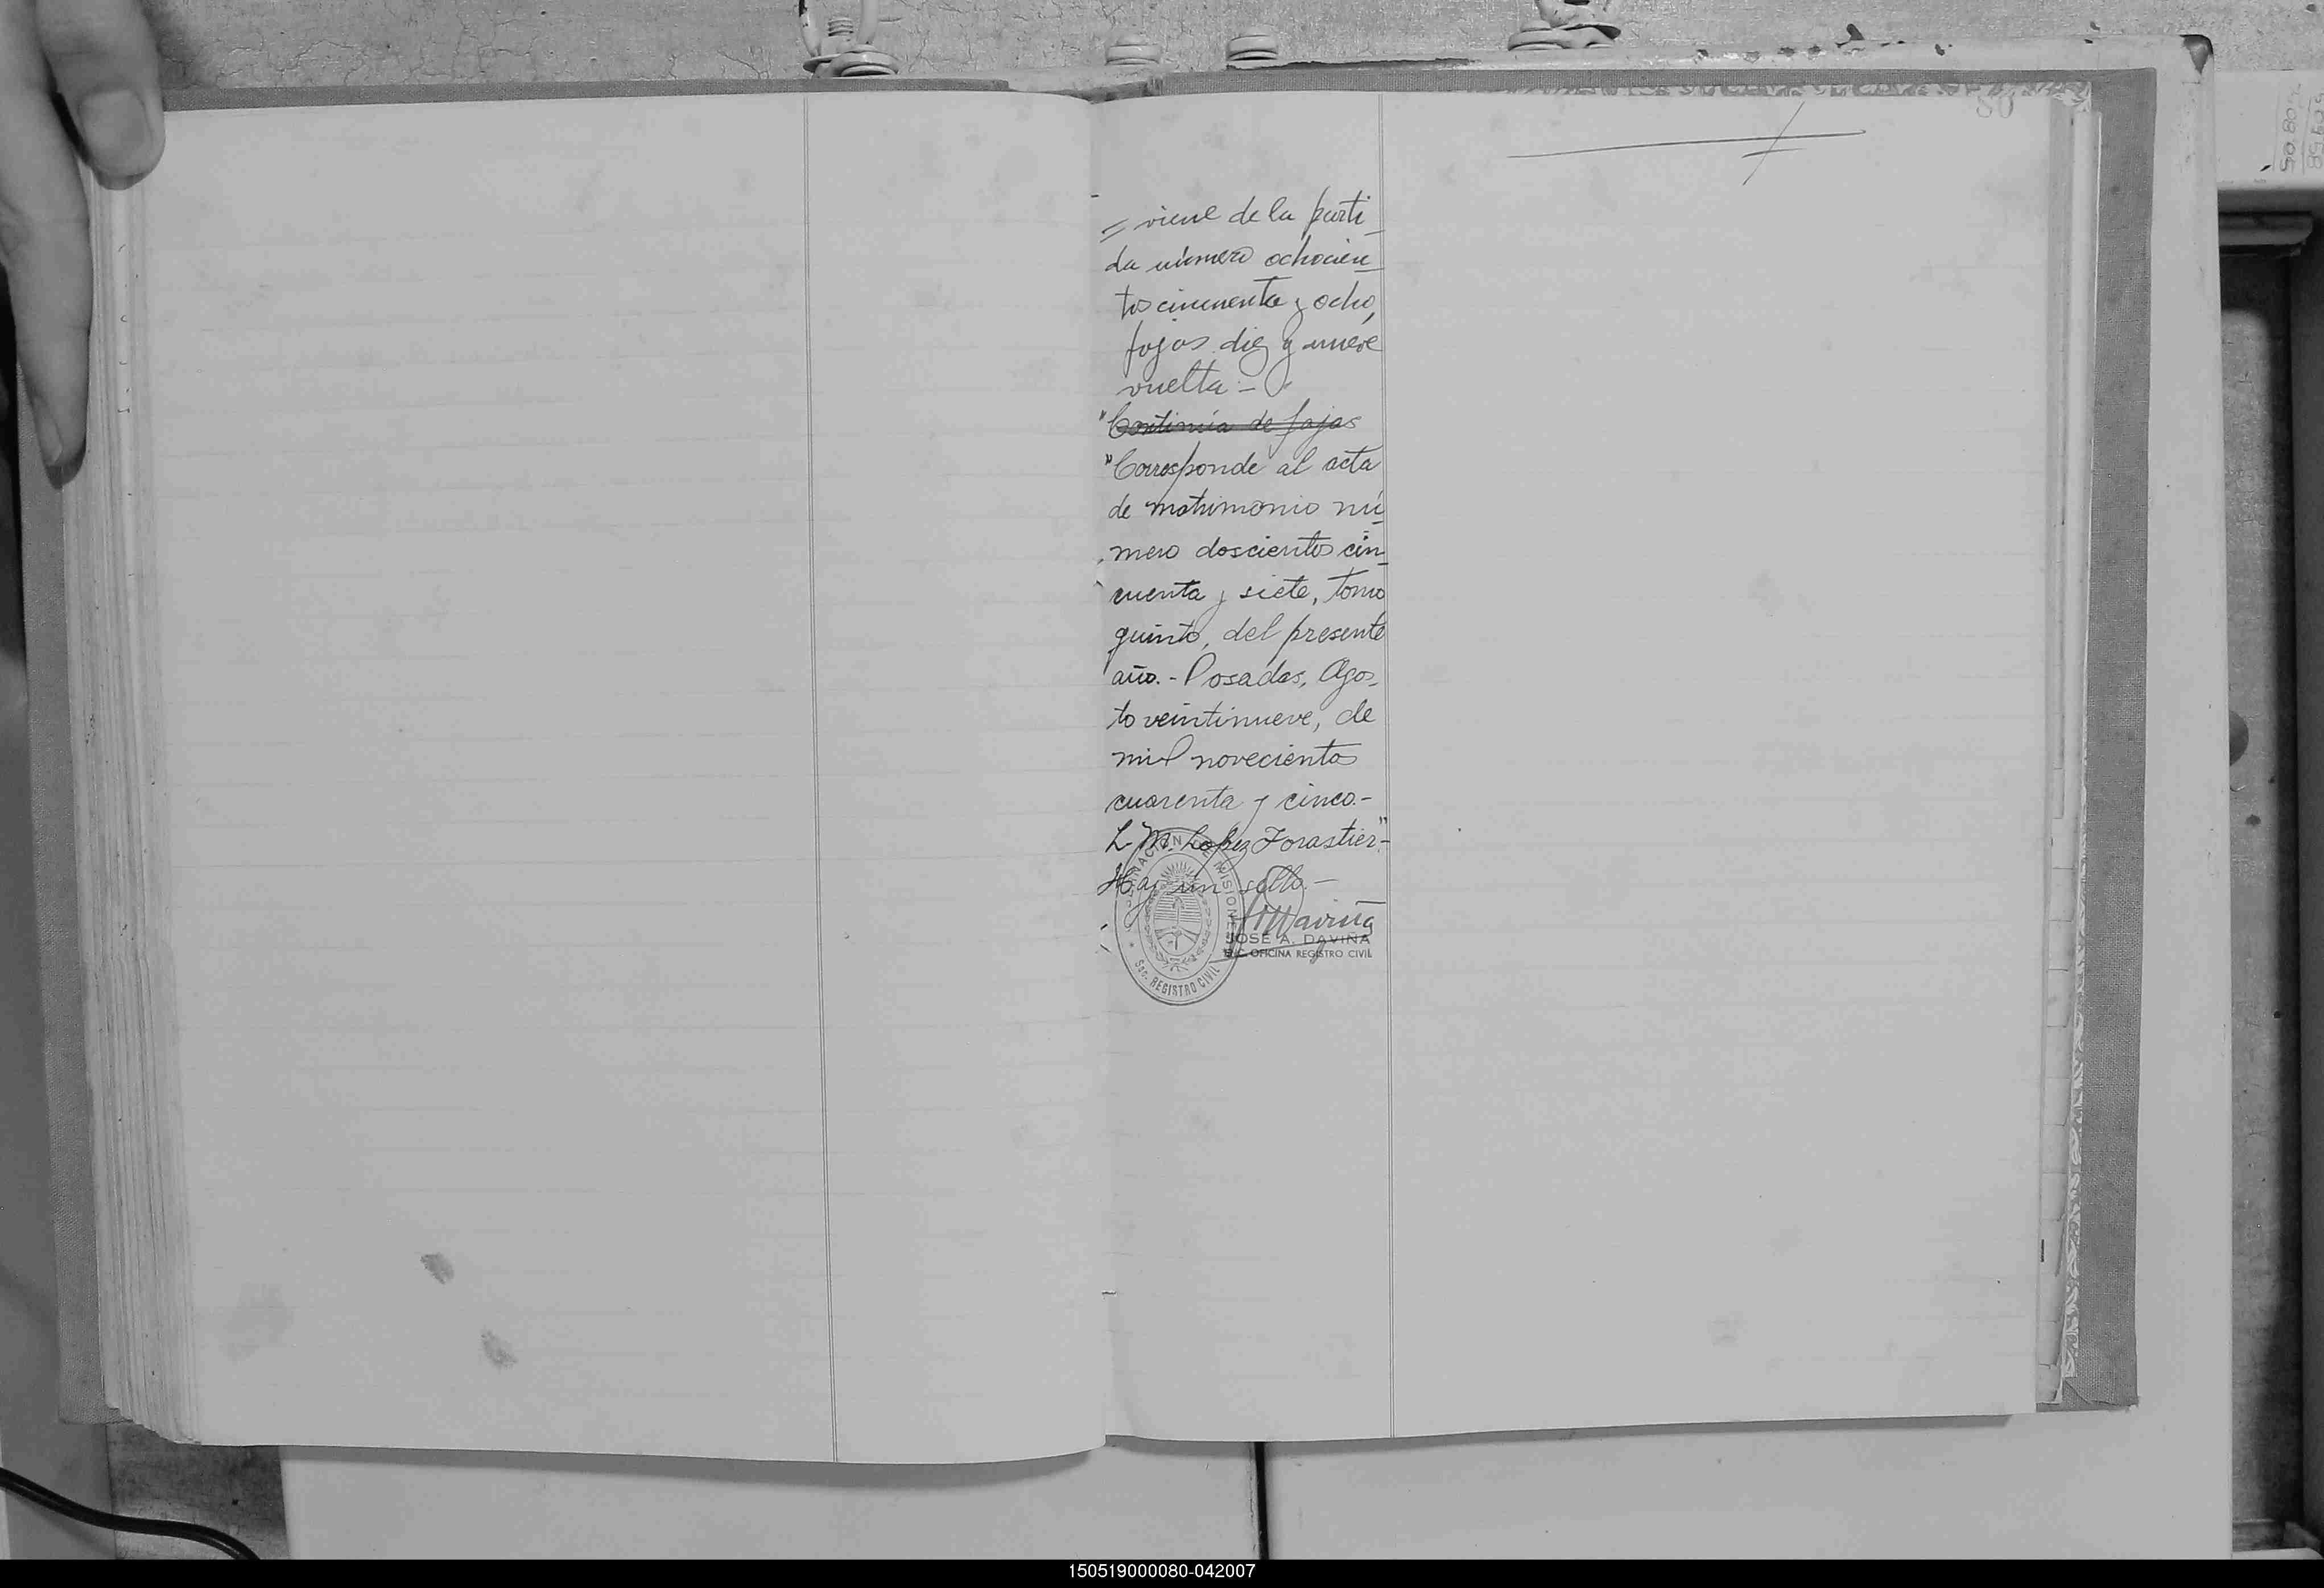 80
= viene de la parti_
da número ochocien_
tos cincuenta y ocho,
fojas diez y nueve
vuelta.-
"Continúa de fojas
"Corresponde al acta
de matrimonio nú_
mero doscientos cin_
cuenta y siete, tomo
quinto, del presente
año.- Posadas, Agos_
to veintinueve, de
mil novecientos
cuarenta y cinco.-
L. M. Lopez Forastier"-
Hay un sello.-
GOBERNACION DE MISIONES
SEC. REGISTRO CIVIL
JOSÉ A. DAVIÑA
OFICINA REGISTRO CIVIL
150519000080-042007